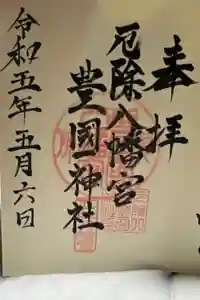 奉拝
厄除八幡宮
豊國神社
令和五年五月六日